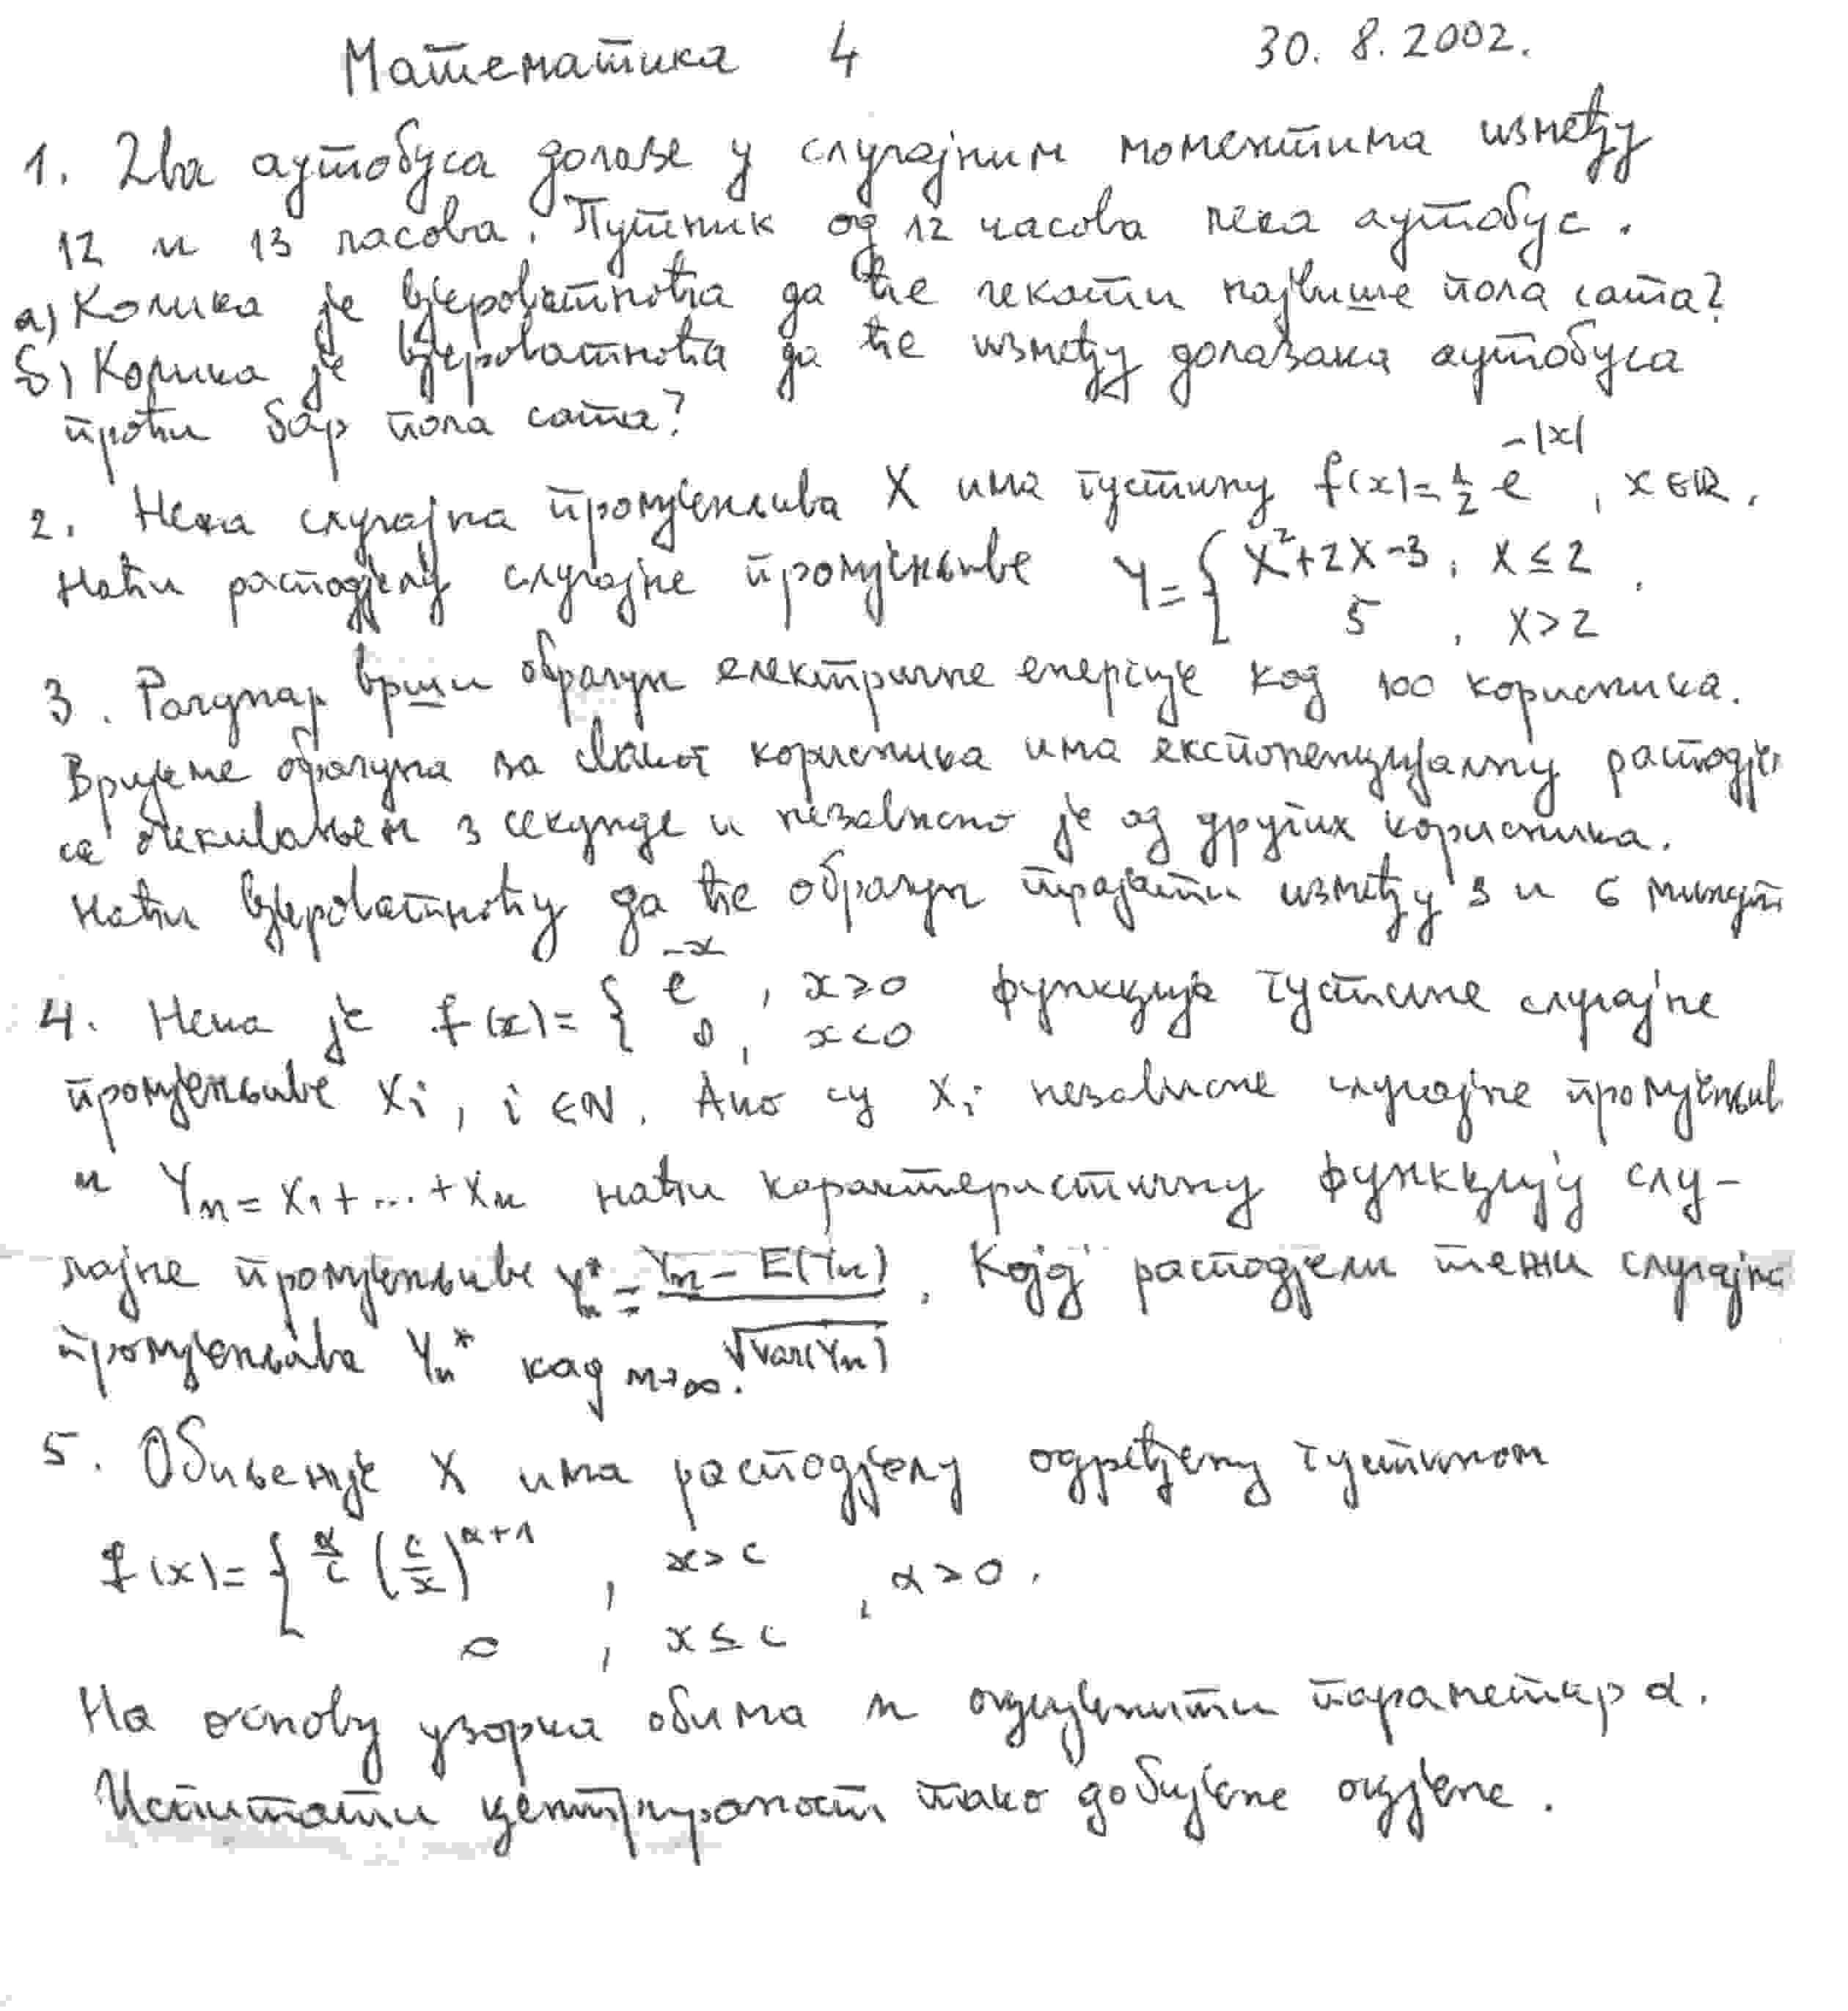 Математика 4 30. 8. 2002.
1. Два аутобуса долазе у случајним моментима између
12 и 13 часова. Путник од 12 часова чека аутобус.
а) Колика је вјероватноћа да ће чекати највише пола сата?
б) Колика је вјероватноћа да ће између долазака аутобуса
проћи бар пола сата?
2. Нека случајна промјенљива X има густину f(x)=½ e^{-|x|}, x∈ℝ.
Наћи расподјелу случајне промјенљиве Y = { X²+2X-3, X ≤ 2
5, X > 2 .
3. Рачунар врши обрачун електричне енергије код 100 корисника.
Вријеме обрачуна за сваког корисника има експоненцијалну расподје
са очекивањем 3 секунде и независно је од других корисника.
Наћи вјероватноћу да ће обрачун трајати између 3 и 6 минут
4. Нека је f(x) = { e^{-x}, x ≥ 0 функција густине случајне
0, x < 0
промјенљиве Xᵢ, i ∈ N. Ако су Xᵢ независне случајне промјенљив
и Yₙ = X₁ + ... + Xₙ наћи карактеристичну функцију слу-
чајне промјенљиве Yₙ* = (Yₙ - E(Yₙ)) / √var(Yₙ) . Којој расподјели тежи случајна
промјенљива Yₙ* кад n→∞.
5. Обиљежје X има расподјелу одређену густином
f(x) = { α/c (c/x)^{α+1}, x > c
0, x ≤ c , α > 0.
На основу узорка обима n оцијенити параметар α.
Испитати центрираност тако добијене оцјене.